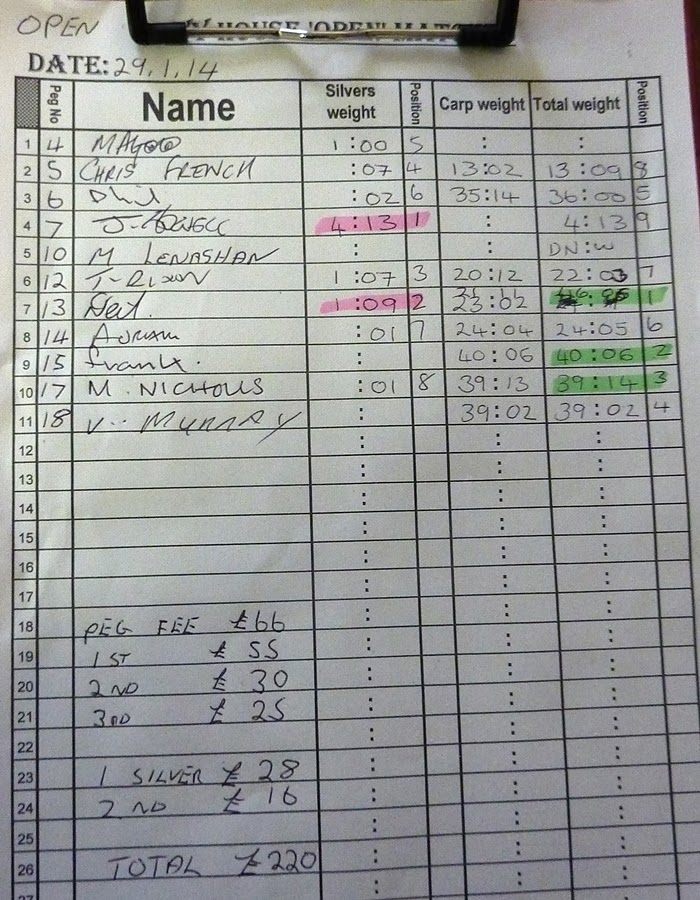 OPEN
HOUSE 'OPEN' MATCH
DATE: 29.1.14
Peg No Name Silvers weight Position Carp weight Total weight Position
1 4 MAGOO 1:00 5 : :
2 5 CHRIS FRENCH :07 4 13:02 13:09 8
3 6 Phil :02 6 35:14 36:00 5
4 7 4:13 1 : 4:13 9
5 10 M LENAGHAN : : DN:W
6 12 T-DIXON 1:07 3 20:12 22:03 7
7 13 1:09 2 23:02 1
8 14 ADRIAN :01 7 24:04 24:05 6
9 15 frank. : 40:06 40:06 2
10 17 M. NICHOLLS :01 8 39:13 39:14 3
11 18 V.. MURRAY : 39:02 39:02 4
12 : : :
13 : : :
14 : : :
15 : : :
16 : : :
17 : : :
18 PEG FEE £66 : : :
19 1ST £ 55 : : :
20 2ND £ 30 : : :
21 3RD £ 25 : : :
22 : : :
23 1 SILVER £ 28 : : :
24 2ND £ 16 : : :
25 : : :
26 TOTAL £220 : : :
27